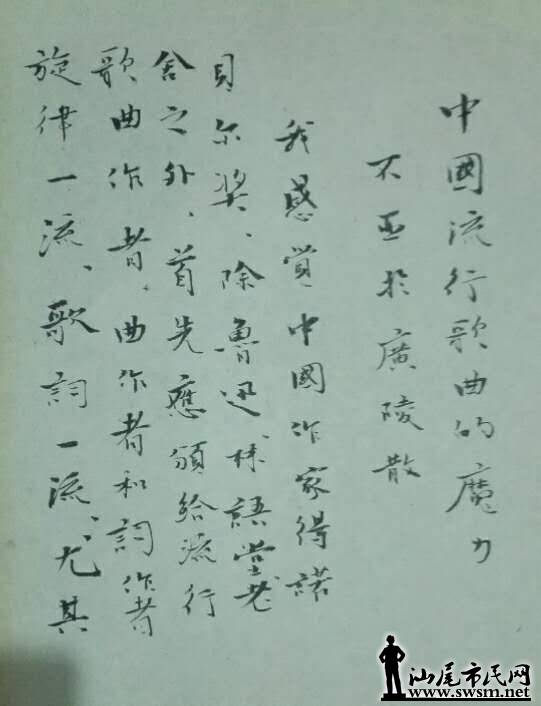 中國流行歌曲的魔力
不亚於廣陵散
我感覚中國作家得諾
貝尔奖、除魯迅、林語堂、老
舍之外、首先應頒给流行
歌曲作者、曲作者和詞作者
旋律一流、歌詞一流、尤其
汕尾市民网
www.swsm.net